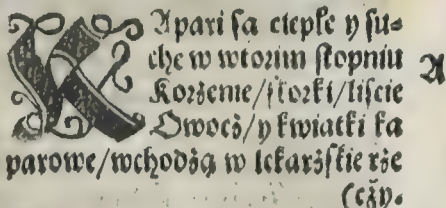 KApari ſa ciepłe y ſu⸗
che w wtorim ſtopniu
Korżenie/ſkorki/liſcie
Owocż/y kwiatki ka
parowe/wchodżą w lekarżſkie rże
(cży.
A